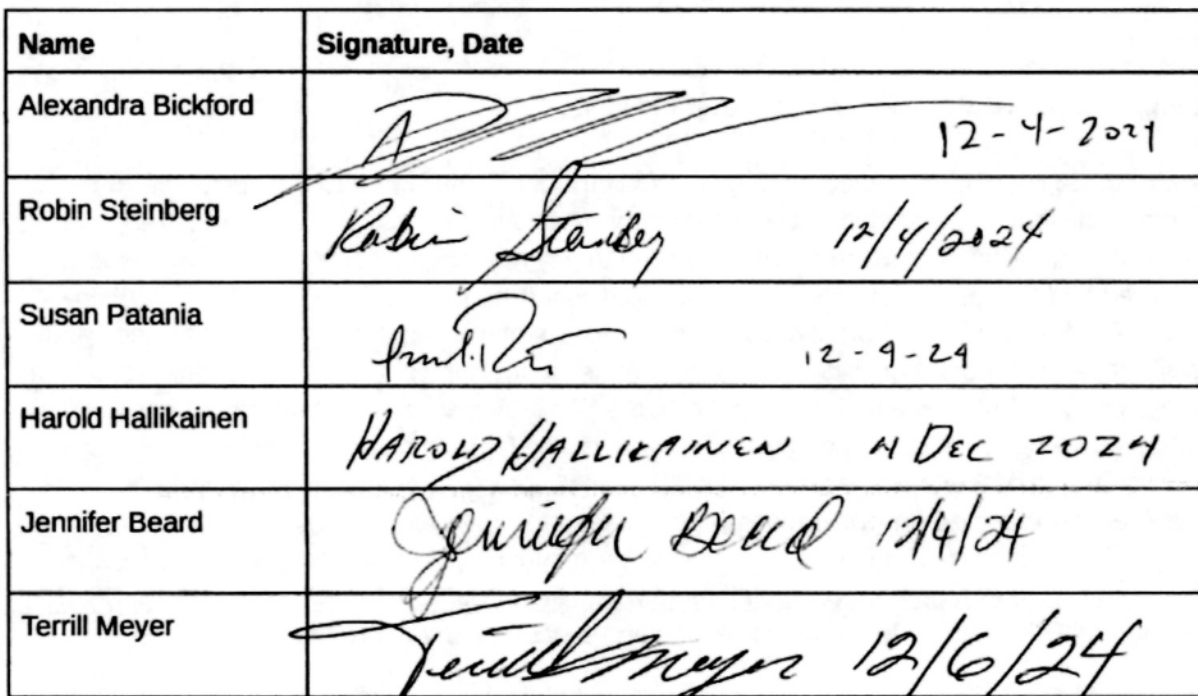 Name Signature, Date
Alexandra Bickford 12-4-2024
Robin Steinberg Robin Steinberg 12/4/2024
Susan Patania 12-4-24
Harold Hallikainen HAROLD HALLIKAINEN 4 DEC 2024
Jennifer Beard Jennifer Beard 12/4/24
Terrill Meyer Terrill Meyer 12/6/24